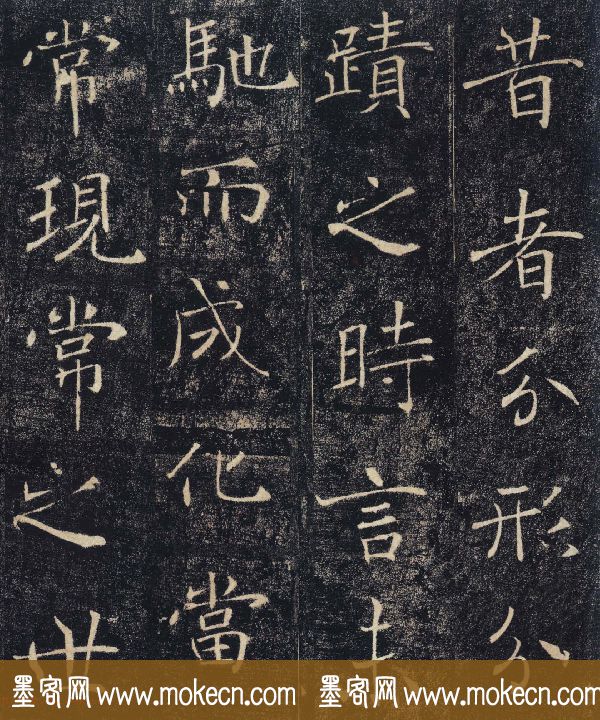 昔者分形分
蹟之時言未
馳而成化當
常現常之世
墨客网 www.mokecn.com 墨客网 www.mokecn.com